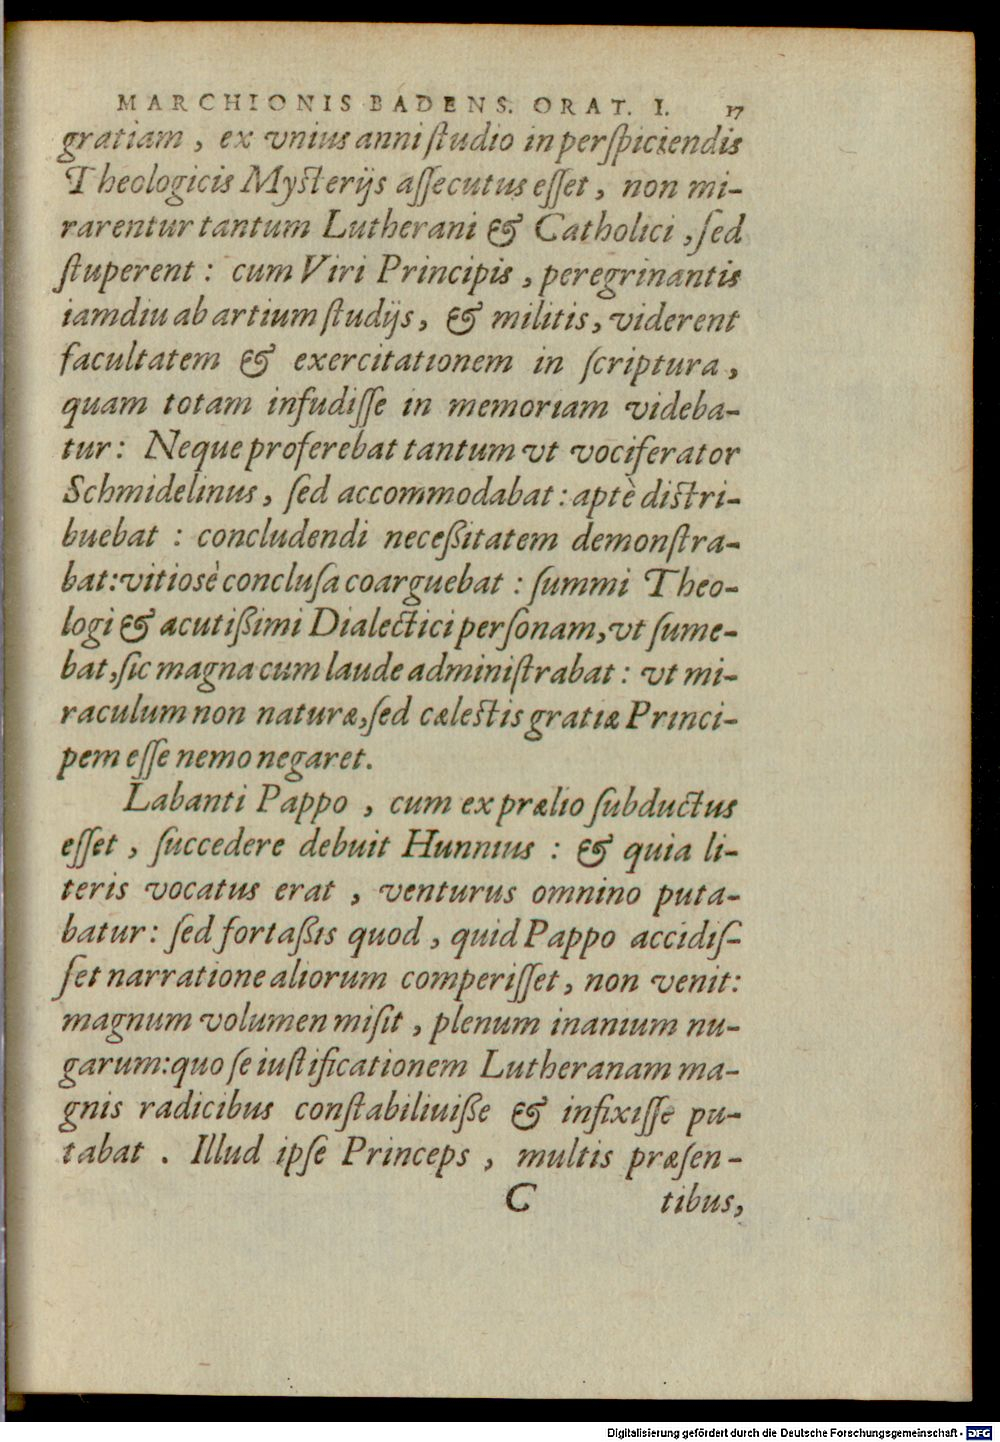 MARCHIONIS BADENS. ORAT. I. 17
gratiam, ex vnius anni ſtudio in perſpiciendis
Theologicis Myſterijs aſſecutus eſſet, non mi-
rarentur tantum Lutherani & Catholici, ſed
ſtuperent: cum Viri Principis, peregrinantis
iamdiu ab artium ſtudijs, & militis, viderent
facultatem & exercitationem in ſcriptura,
quam totam infudiſſe in memoriam videba-
tur: Neque proferebat tantum vt vociferator
Schmidelinus, ſed accommodabat: aptè diſtri-
buebat: concludendi neceßitatem demonſtra-
bat: vitiosè concluſa coarguebat: ſummi Theo-
logi & acutißimi Dialectici perſonam, vt ſume-
bat, ſic magna cum laude adminiſtrabat: vt mi-
raculum non naturæ, ſed cæleſtis gratiæ Princi-
pem eſſe nemo negaret.
Labanti Pappo, cum ex prælio ſubductus
eſſet, ſuccedere debuit Hunnius: & quia li-
teris vocatus erat, venturus omnino puta-
batur: ſed fortaßis quod, quid Pappo accidiſ-
ſet narratione aliorum comperiſſet, non venit:
magnum volumen miſit, plenum inanium nu-
garum: quo ſe iuſtificationem Lutheranam ma-
gnis radicibus conſtabiliuiße & infixiſſe pu-
tabat. Illud ipſe Princeps, multis præſen-
C tibus,
Digitalisierung gefördert durch die Deutsche Forschungsgemeinschaft - DFG